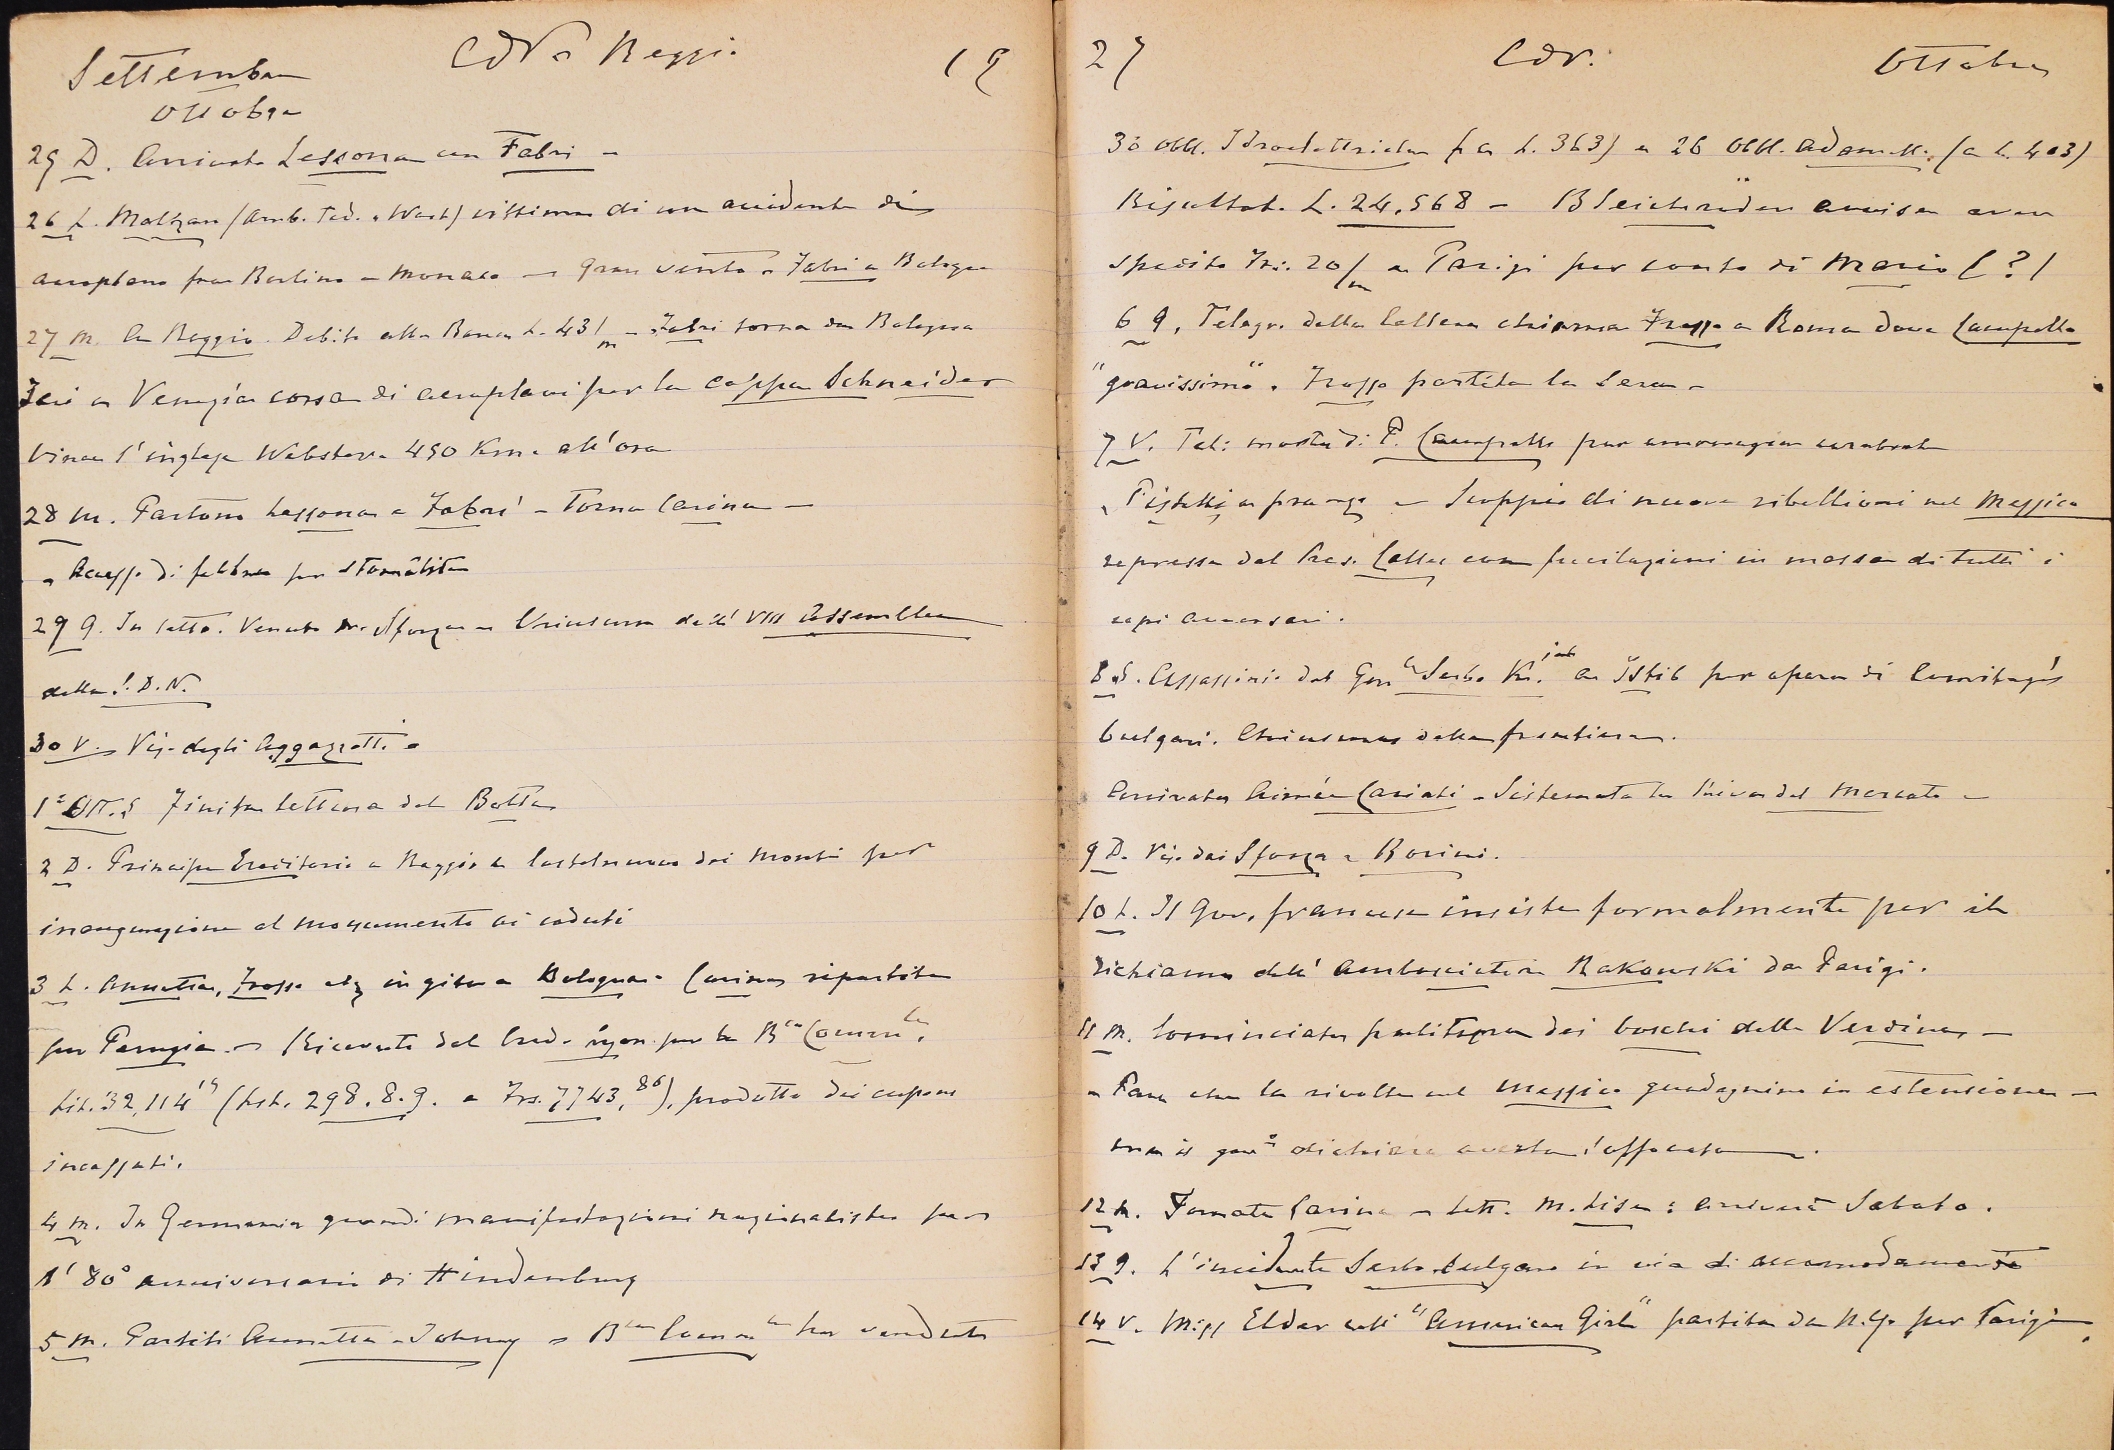 Settembre CdV e Reggio 19
Ottobre
25 D. Arrivata Lessona con Fabri –
26 L. Maltzan (Amb. Ted. a Wash) vittima di un accidente di
aeroplano fra Berlino e Monaco – Gran vento – Fabri a Bologna
27 M. A Reggio. Debito alla Banca L. 43/m – Fabri torna da Bologna
Ieri a Venezia corsa di aeroplani per la coppa Schneider
Vince l'inglese Webster a 450 Km. all'ora
28 M. Partono Lessona e Fabri – Torna Carina –
Accesso di febbre per stomatite
29 G. In letto. Venuto Sforza – Chiusura dell' VIII Assemblea
della S. D. N.
30 V. – Vis. degli Aggazzotti –
1° Ott. S Finita lettura del Botta
2 D. Principe Ereditario a Reggio e Castelnuovo dei Monti per
inaugurazione al monumento ai caduti
3 L. Annetta, Frasso in gita a Bologna – Carina ripartita
per Perugia – Ricevute dal Cred. per la Bca Comm.le
Lit. 32,114 15 (Lst. 298.8.9. e Frs. 7743,86), prodotto dei cupons
incassati.
4 M. In Germania grandi manifestazioni nazionaliste per
l' 80° anniversario di Hindenburg
5 M. Partiti Annetta – Johnny – Bca Comm.le ha venduto
27 CdV. Ottobre
30 obbl. Idroelettriche (a L. 363) e 26 obbl. Adamello (a L. 403)
Risultato L. 24,568 – Bleichröder avvisa aver
spedito Fr. 20/m a Parigi per conto di Mario (?)
6 G. Telegr. della chiama Frasso a Roma dove Campello
"gravissimo". Frasso partita la sera –
7 V. Tel: morte di P. Campello per emorragia cerebrale
Pistelli a pranzo – Scoppio di nuove ribellioni nel Messico
repressa dal Pres. Calles con fucilazioni in massa di tutti i
capi avversari.
8 S. Assassinio del Gen.le Serbo K. a Istib per opera di Comitagi
bulgari. Chiusura della frontiera.
Arrivata Aimée Cariati – Sistemata la riva del Mercato –
9 D. Vis. dai Sforza e Borini.
10 L. Il Gov. francese insiste formalmente per il
richiamo dell' ambasciatore Rakowski da Parigi.
11 M. Cominciata pulitura dei boschi della Verdina –
– Pare che la rivolta nel Messico guadagnino in estensione –
ma il gov° dichiara averla soffocata.
12 M. Tornata Carina – Lett. M. Lisa: arriverà Sabato.
13 G. L'incidente Serbo bulgaro in via di accomodamento
14 V. Miss Elder coll' "American Girl" partita da N.Y. per Parigi.